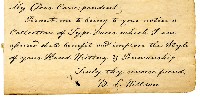 My Dear Correspondent,
Permit me to bring to your notice a
Collection of Type Faces which I am
assured is to benefit and improve the Style
of your Hand Writing & Penmanship
Truly thy sincere friend,